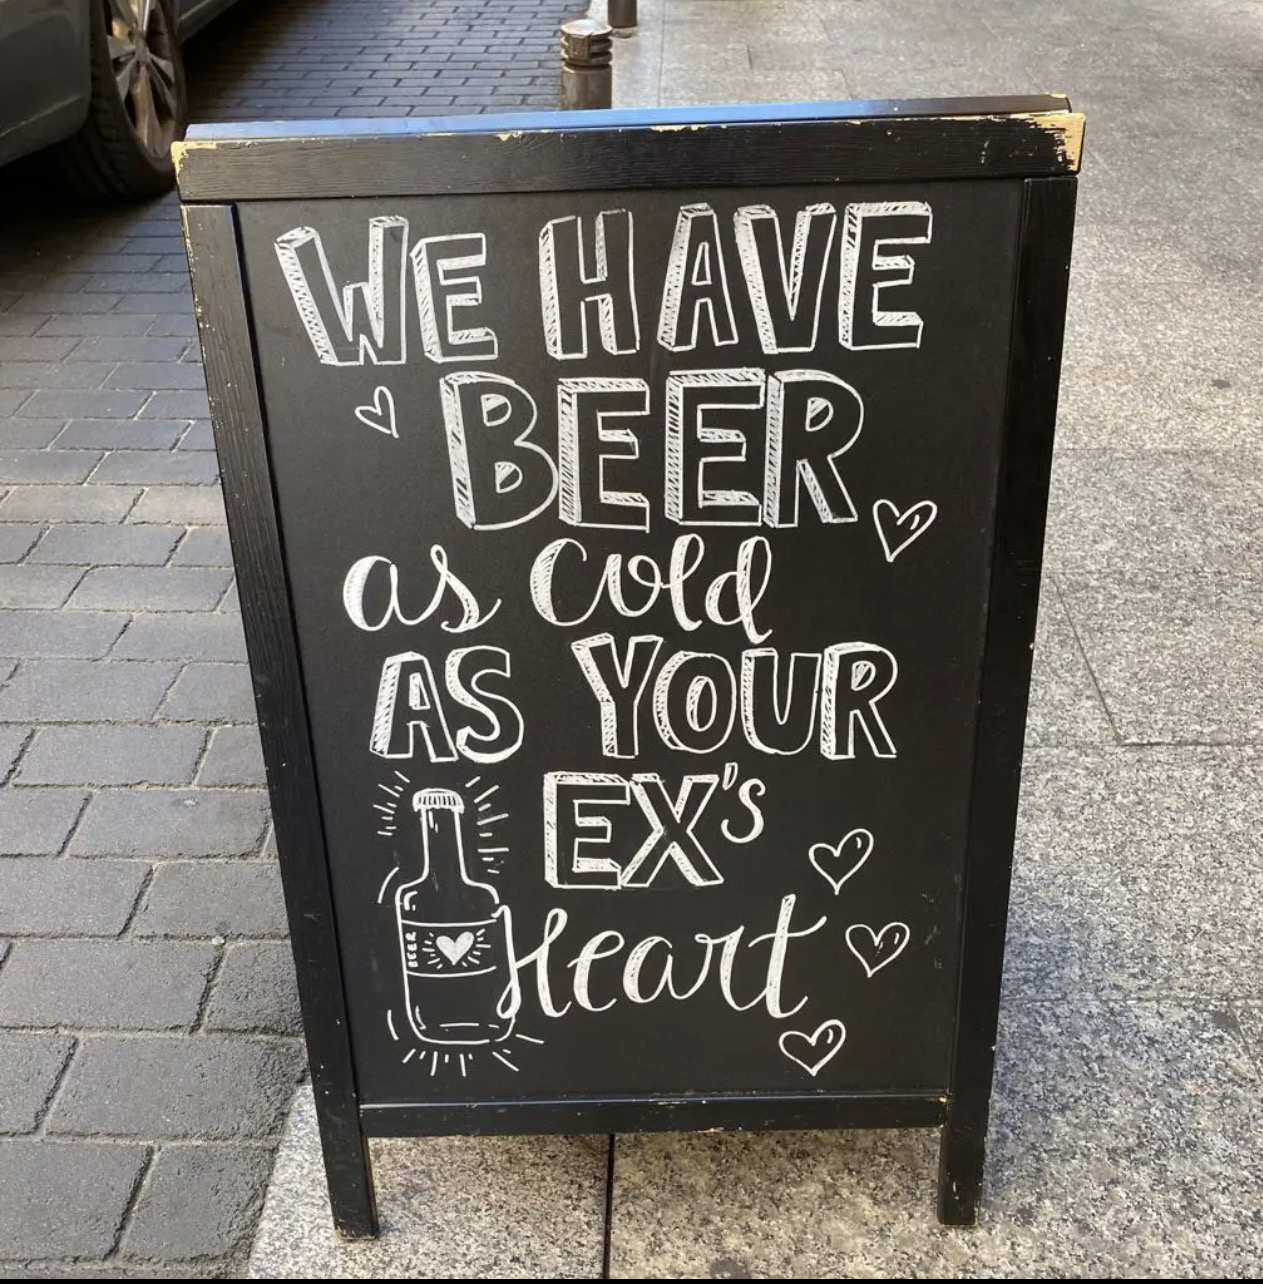 WE HAVE
BEER
as Cold
AS YOUR
EX's
Heart
BEER